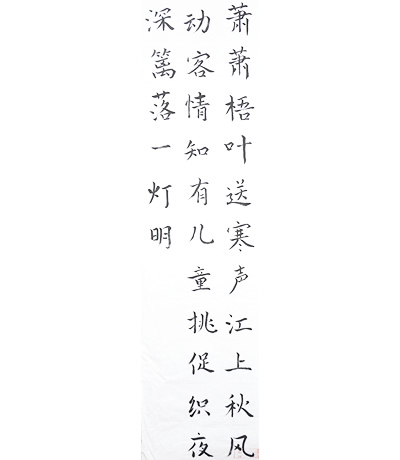 萧萧梧叶送寒声江上秋风
动客情知有儿童挑促织夜
深篱落一灯明